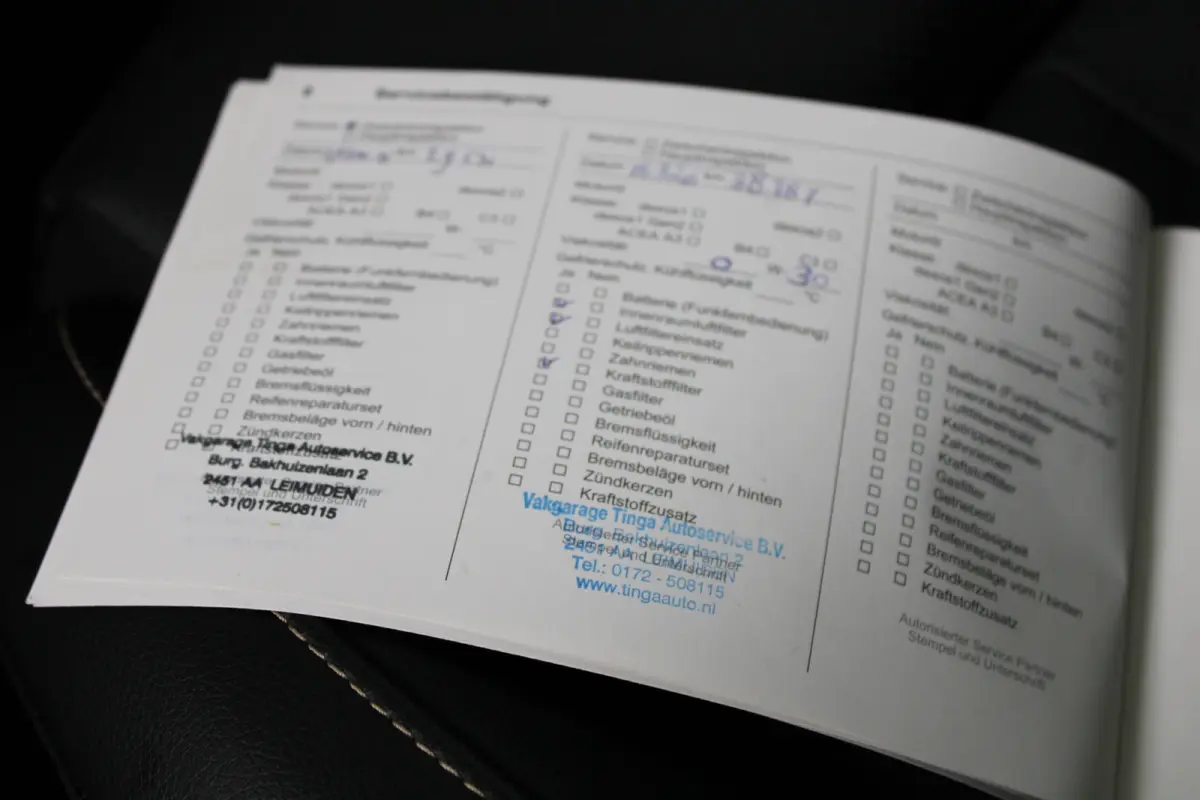 Servicebestätigung
Service
Datum
km
Motoröl
Klasse dexos1 dexos2
dexos1 Gen2
ACEA A3 B4 C3
Viskosität W
Gefrierschutz, Kühlflüssigkeit °C
Ja Nein
Batterie (Funkfernbedienung)
Innenraumluftfilter
Luftfiltereinsatz
Keilrippenriemen
Zahnriemen
Kraftstofffilter
Gasfilter
Getriebeöl
Bremsflüssigkeit
Reifenreparaturset
Bremsbeläge vorn / hinten
Zündkerzen
Kraftstoffzusatz
Vakgarage Tinga Autoservice B.V.
Burg. Bakhuizenlaan 2
2451 AA LEIMUIDEN
Stempel und Unterschrift
+31(0)172508115
Service
Datum km
Motoröl
Klasse dexos1 dexos2
dexos1 Gen2
ACEA A3 B4 C3
Viskosität 0 W 30
Gefrierschutz, Kühlflüssigkeit °C
Ja Nein
Batterie (Funkfernbedienung)
Innenraumluftfilter
Luftfiltereinsatz
Keilrippenriemen
Zahnriemen
Kraftstofffilter
Gasfilter
Getriebeöl
Bremsflüssigkeit
Reifenreparaturset
Bremsbeläge vorn / hinten
Zündkerzen
Kraftstoffzusatz
Vakgarage Tinga Autoservice B.V.
Burg. Bakhuizenlaan 2
Autorisierter Service Partner
2451 AA LEIMUIDEN
Stempel und Unterschrift
Tel.: 0172 - 508115
www.tingaauto.nl
Service
Datum
km
Motoröl
Klasse dexos1
dexos1 Gen2
ACEA A3 B4
Viskosität W
Gefrierschutz, Kühlflüssigkeit °C
Ja Nein
Batterie (Funkfernbedienung)
Innenraumluftfilter
Luftfiltereinsatz
Keilrippenriemen
Zahnriemen
Kraftstofffilter
Gasfilter
Getriebeöl
Bremsflüssigkeit
Reifenreparaturset
Bremsbeläge vorn / hinten
Zündkerzen
Kraftstoffzusatz
Autorisierter Service Partner
Stempel und Unterschrift